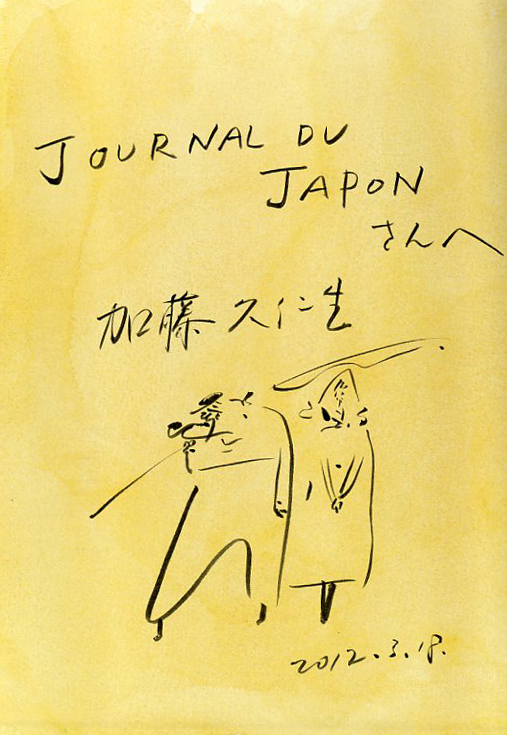 JOURNAL DU
JAPON
さんへ
加藤久仁生
2012.3.18.